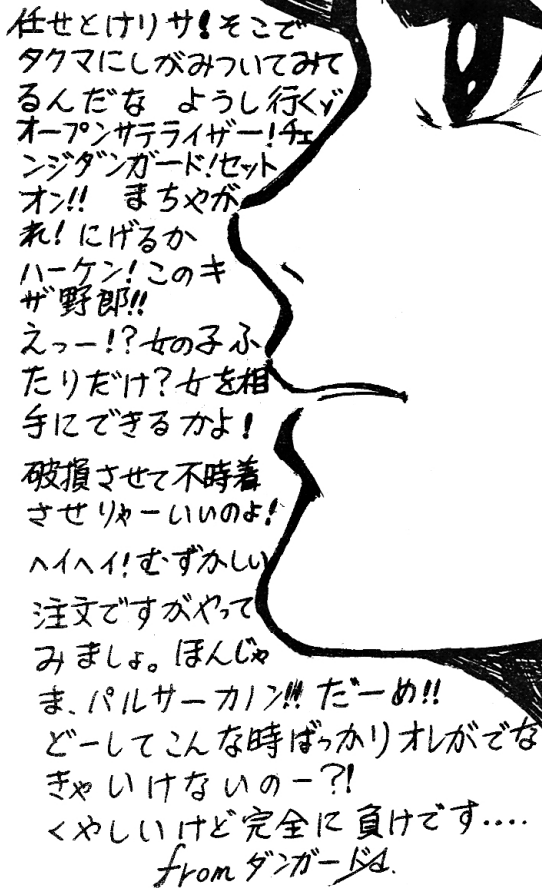 任せとけリサ!そこで
タクマにしがみついてみて
るんだな ようし行くゾ
オープンサテライザー!チェ
ンジダンガード!セット
オン!! まちやが
れ!にげるか
ハーケン!このキ
ザ野郎!!
えっー!?女の子ふ
たりだけ?女を相
手にできるかよ!
破損させて不時着
させりゃーいいのよ!
ヘイヘイ!むずかしい
注文ですがやって
みましょ。ほんじゃ
ま、パルサーカノン!!! だーめ!!
どーしてこんな時ばっかりオレがでな
きゃいけないのー?!
くやしいけど完全に負けです‥‥
from ダンガードA.